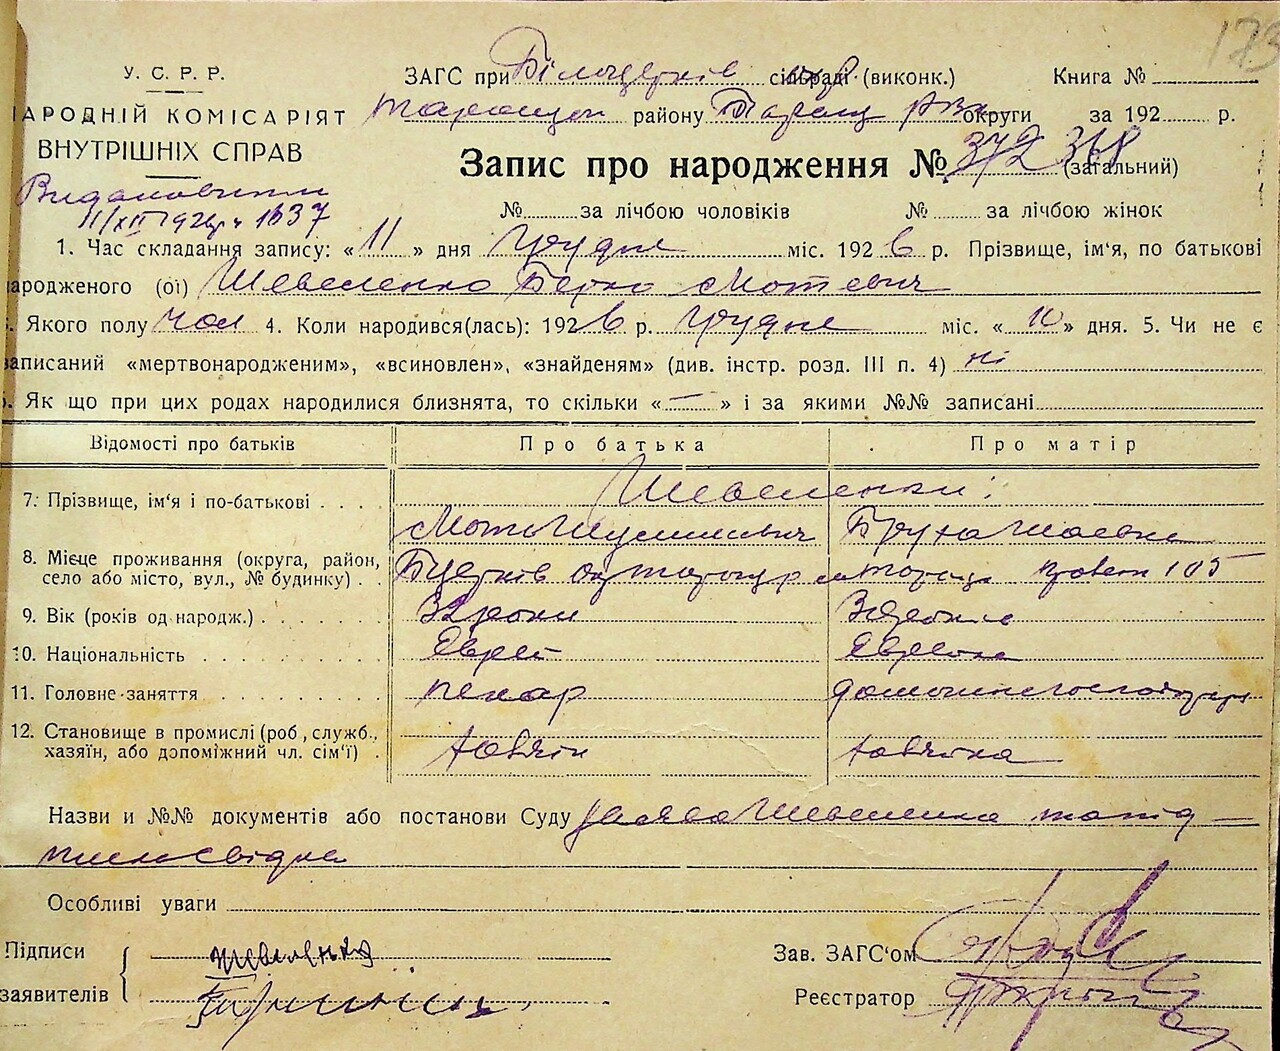 173
У. С. Р. Р.
ЗАГС при Білоцерків сільраді (виконк.) Книга №
НАРОДНІЙ КОМІСАРІЯТ
району округи за 192 р.
ВНУТРІШНІХ СПРАВ
Запис про народження № 372 368 (загальний)
11/XII 192 1637
№ за лічбою чоловіків № за лічбою жінок
1. Час складання запису: «11» дня грудня міс. 1926 р. Прізвище, ім'я, по батькові
народженого (ої) Шевеленко Берко Мотевич
Якого полу чол 4. Коли народився(лась): 1926 р. грудня міс. «10» дня. 5. Чи не є
записаний «мертвонародженим», «всиновлен», «знайденям» (див. інстр. розд. III п. 4) ні
Як що при цих родах народилися близнята, то скільки «—» і за якими №№ записані
Відомості про батьків Про батька Про матір
7. Прізвище, ім'я і по-батькові Шевеленки:
Мотя Шулимович Бруха Шаевна
8. Місце проживання (округа, район, село або місто, вул., № будинку) 105
9. Вік (років од народж.) 32 роки
10. Національність Еврей Еврейка
11. Головне заняття пекар
12. Становище в промислі (роб, служб., хазяїн, або допоміжний чл. сім'ї)
Назви и №№ документів або постанови Суду заява Шевеленка та під
писка свідка
Особливі уваги
Підписи Шевеленко Зав. ЗАГС'ом
заявителів Реєстратор